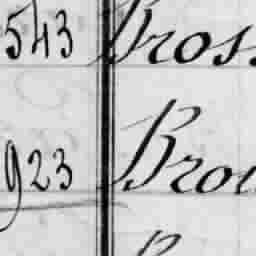 543 Bros
923 Brou